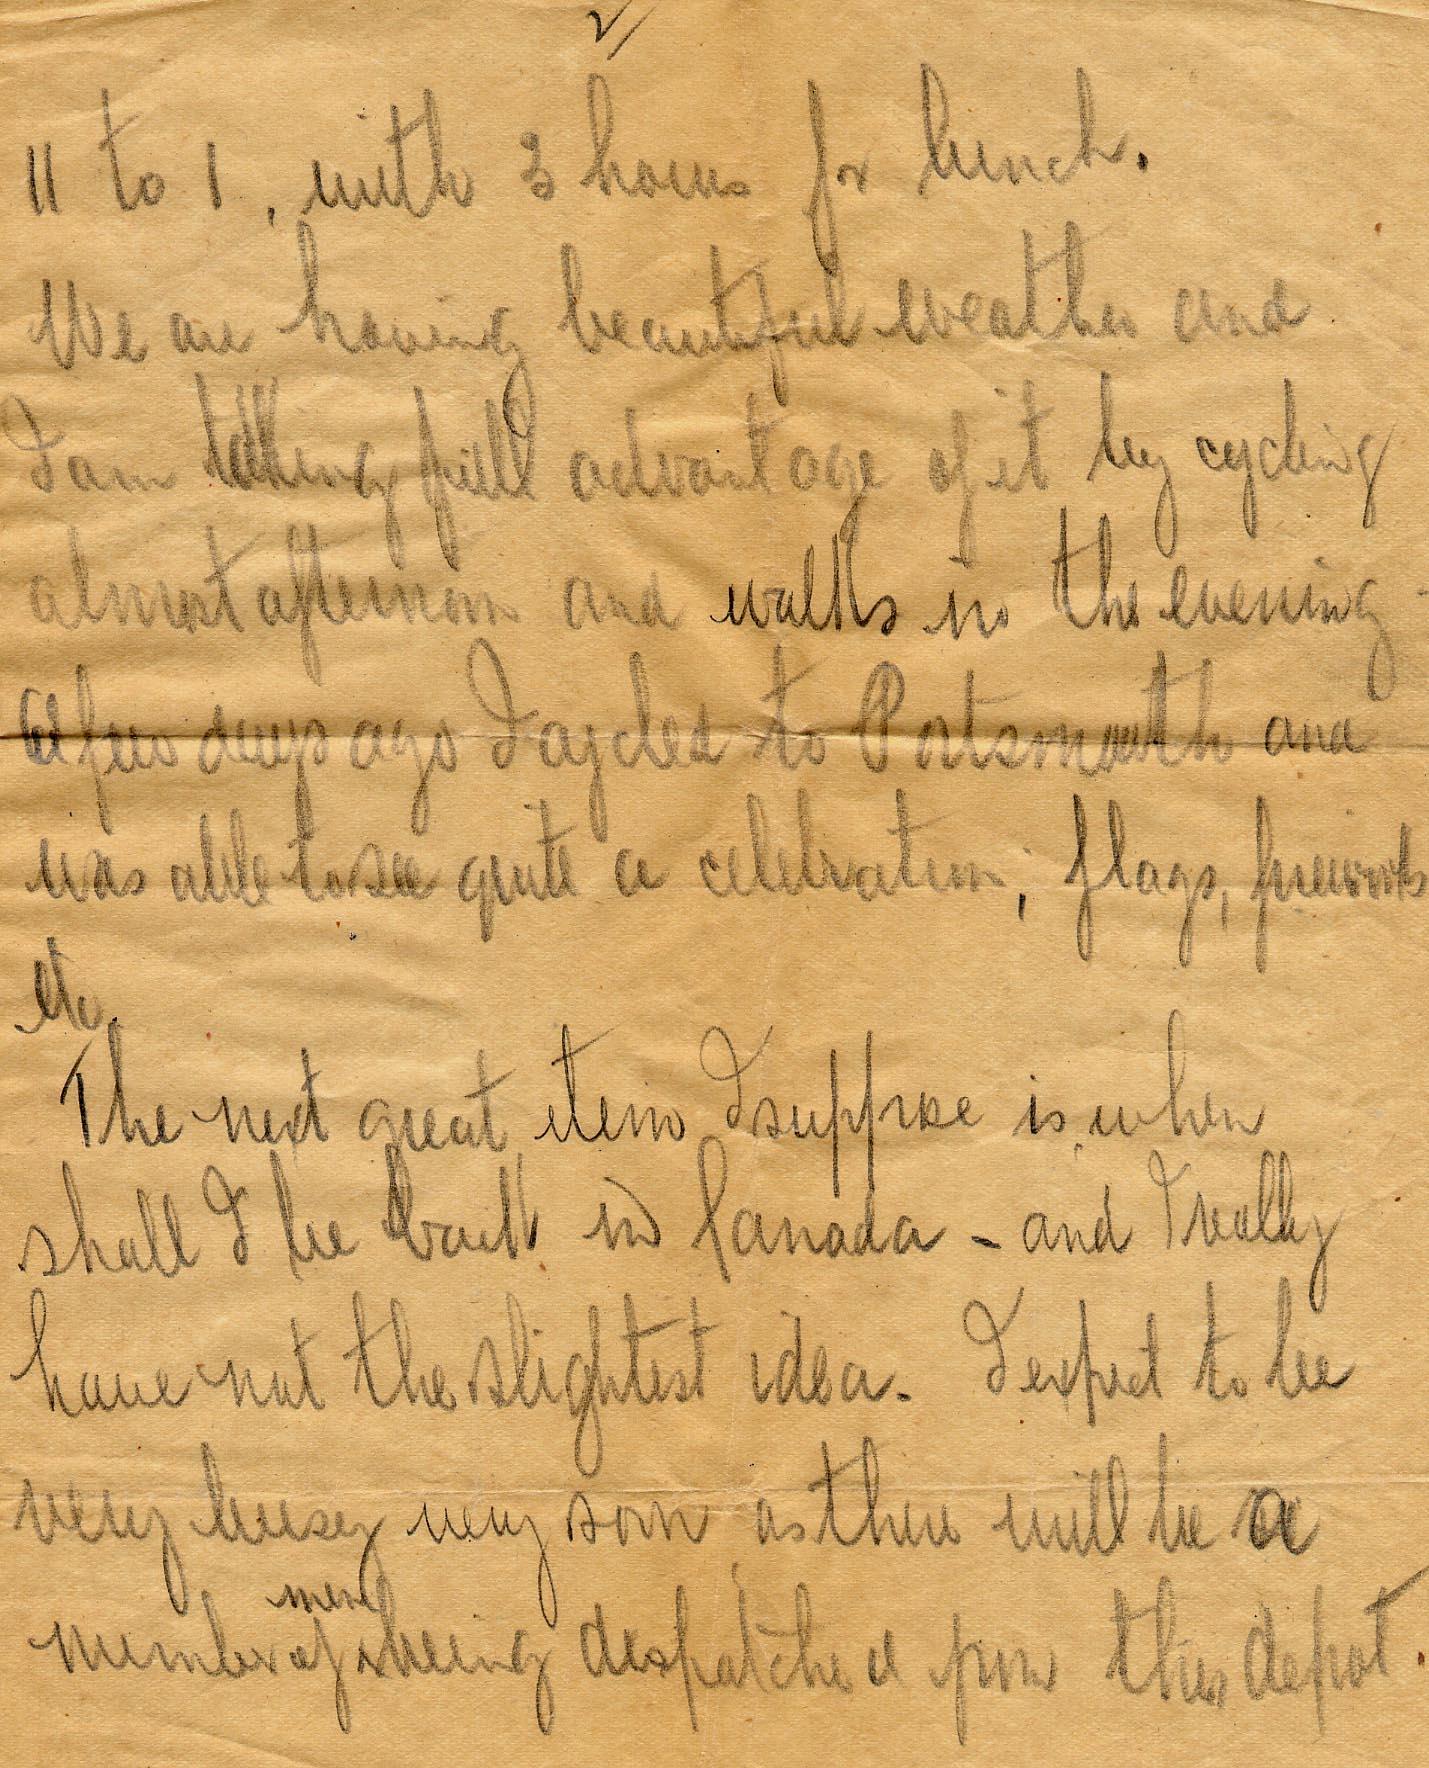 2/
11 to 1, with 3 hours for lunch.
We are having beautiful weather and
I am taking full advantage of it by cycling
almost afternoon and walks in the evening.
A few days ago I cycled to Portsmouth and
was able to see quite a celebration; flags, fireworks
etc.
The next great item I suppose is when
shall I be back in Canada - and I really
have not the slightest idea. I expect to be
very busy very soon as there will be a
men
number of being despatched from this depot.